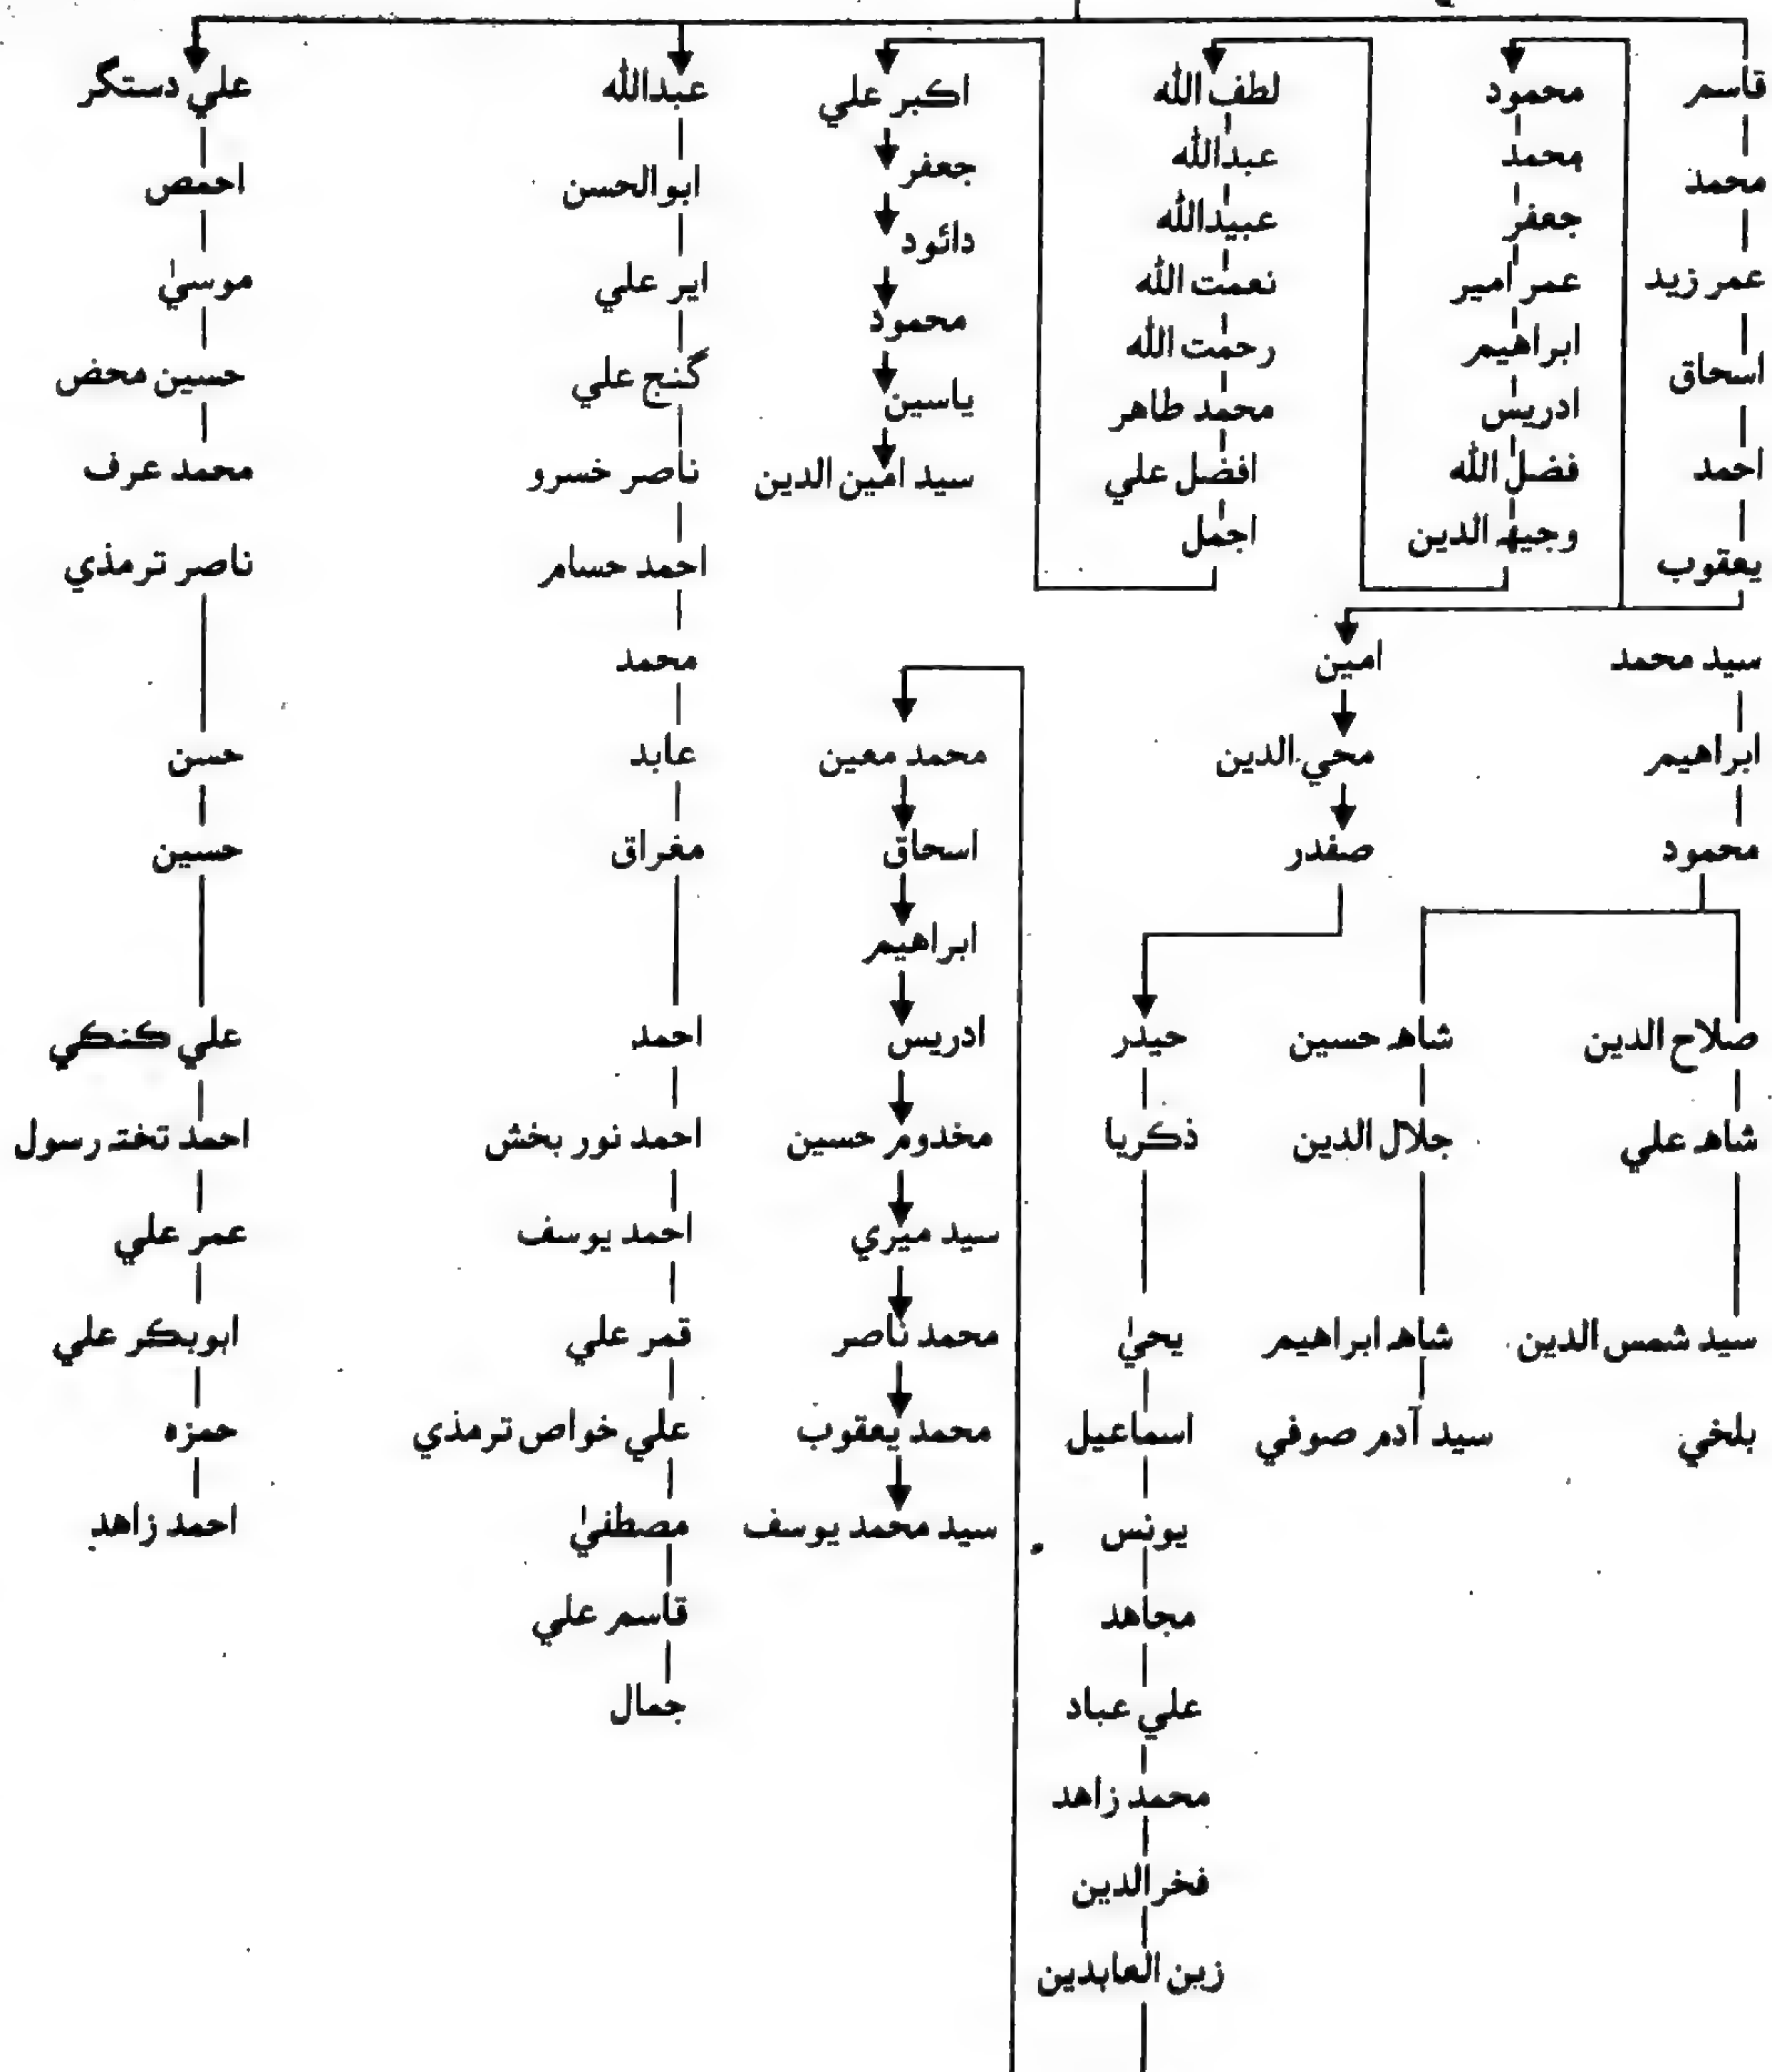 قاسم
محمد
عمر زيد
اسحاق
احمد
يعقوب
محمود
محمد
جعفر
عمر امير
ابراهيم
ادريس
فضل الله
وجيهـ الدين
لطف الله
عبدالله
عبيدالله
نعمت الله
رحمت الله
محمد طاهر
افضل علي
اجمل
اكبر علي
جعفر
دائود
محمود
ياسين
سيد امين الدين
عبدالله
ابوالحسن
اير علي
گنج علي
ناصر خسرو
احمد حسام
محمد
عابد
مغراق
احمد
احمد نور بخش
احمد يوسف
قمر علي
علي خواص ترمذي
مصطفيٰ
قاسم علي
جمال
علي دستگر
احمص
موسيٰ
حسين محض
محمد عرف
ناصر ترمذي
حسن
حسين
علي ڪنڪي
احمد تختہ رسول
عمر علي
ابوبڪر علي
حمزه
احمد زاهد
سيد محمد
ابراهيم
محمود
صلاح الدين
شاهہ علي
سيد شمس الدين
بلخي
شاهہ حسين
جلال الدين
شاهہ ابراهيم
سيد آدم صوفي
امين
محي الدين
صفدر
حيدر
ذڪريا
يحيٰ
اسماعيل
يونس
مجاهد
علي عباد
محمد زاهد
فخرالدين
زين العابدين
محمد معين
اسحاق
ابراهيم
ادريس
مخدوم حسين
سيد ميري
محمد ناصر
محمد يعقوب
سيد محمد يوسف